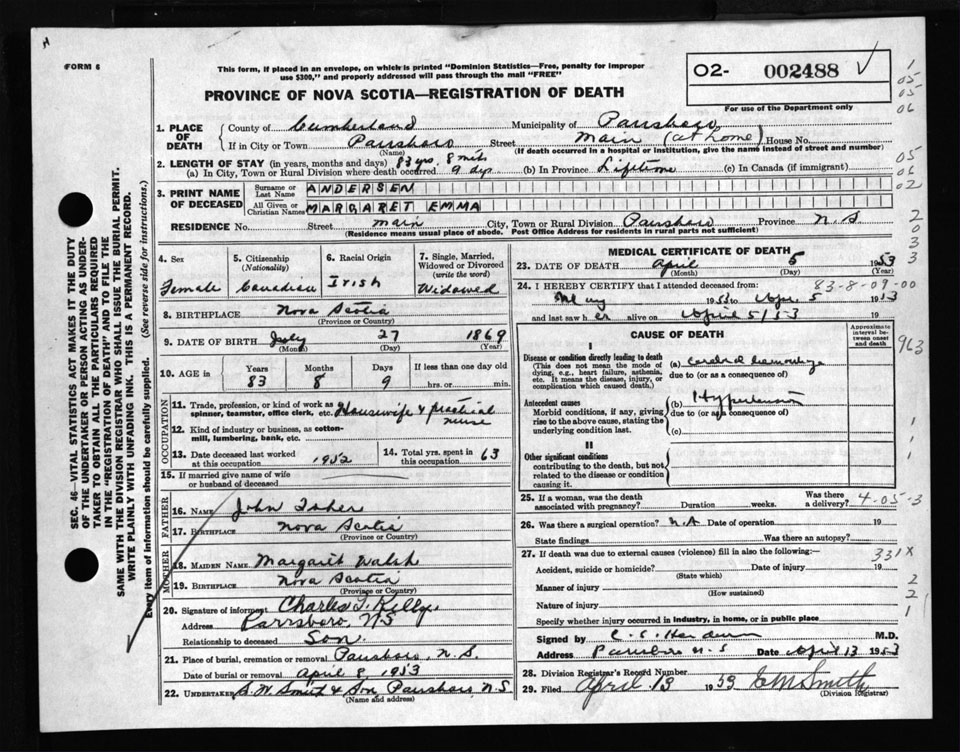 FORM 6
This form, if placed in an envelope, on which is printed "Dominion Statistics—Free, penalty for improper
use $300," and properly addressed will pass through the mail "FREE"
PROVINCE OF NOVA SCOTIA—REGISTRATION OF DEATH
O2- 002488
For use of the Department only
1
05
05
06
05
06
02
2
0
3
3
SEC. 46—VITAL STATISTICS ACT MAKES IT THE DUTY
OF THE UNDERTAKER OR PERSON ACTING AS UNDER-
TAKER TO OBTAIN ALL THE PARTICULARS REQUIRED
IN THE "REGISTRATION OF DEATH" AND TO FILE THE
SAME WITH THE DIVISION REGISTRAR WHO SHALL ISSUE THE BURIAL PERMIT.
WRITE PLAINLY WITH UNFADING INK. THIS IS A PERMANENT RECORD.
Every item of information should be carefully supplied. (See reverse side for instructions.)
1. PLACE OF DEATH
County of Cumberland Municipality of Parrsboro
If in City or Town Parrsboro Street Main (at home) House No.
(Name) (If death occurred in a hospital or institution, give the name instead of street and number)
2. LENGTH OF STAY (in years, months and days) 83 yrs. 8 mths
(a) In City, Town or Rural Division where death occurred 9 dys (b) In Province Lifetime (c) In Canada (if immigrant)
3. PRINT NAME OF DECEASED
Surname or Last Name ANDERSEN
All Given or Christian Names MARGARET EMMA
RESIDENCE No. Street main City, Town or Rural Division Parrsboro Province N.S.
(Residence means usual place of abode. Post Office Address for residents in rural parts not sufficient)
4. Sex
Female
5. Citizenship
(Nationality)
Canadian
6. Racial Origin
Irish
7. Single, Married,
Widowed or Divorced
(write the word)
Widowed
8. BIRTHPLACE Nova Scotia
(Province or Country)
9. DATE OF BIRTH July 27 1869
(Month) (Day) (Year)
10. AGE in Years Months Days If less than one day old
83 8 9 hrs. or min.
OCCUPATION
11. Trade, profession, or kind of work as
spinner, teamster, office clerk, etc. Housewife & practical
nurse
12. Kind of industry or business, as cotton-
mill, lumbering, bank, etc.
13. Date deceased last worked
at this occupation 1952
14. Total yrs. spent in
this occupation 63
15. If married give name of wife
or husband of deceased
FATHER
16. NAME John Fisher
17. BIRTHPLACE Nova Scotia
(Province or Country)
MOTHER
18. MAIDEN NAME Margaret Walsh
19. BIRTHPLACE Nova Scotia
(Province or Country)
20. Signature of informant Charles T. Kelly,
Address Parrsboro, NS
Relationship to deceased Son.
21. Place of burial, cremation or removal Parrsboro, N.S.
Date of burial or removal April 8, 1953
22. UNDERTAKER S.W. Smith & Son Parrsboro, N.S.
(Name and address)
MEDICAL CERTIFICATE OF DEATH
23. DATE OF DEATH April 5 1953
(Month) (Day) (Year)
24. I HEREBY CERTIFY that I attended deceased from: 83-8-09-00
1953 to Apr. 5 1953
and last saw her alive on April 5/53 19
CAUSE OF DEATH
Approximate
interval be-
tween onset
and death
963
I
Disease or condition directly leading to death
(This does not mean the mode of
dying, e.g., heart failure, asthenia,
etc. It means the disease, injury, or
complication which caused death.)
(a) cerebral hemorrhage
due to (or as a consequence of)
Antecedent causes
Morbid conditions, if any, giving
rise to the above cause, stating the
underlying condition last.
(b) Hypertension
due to (or as a consequence of)
(c)
1
1
1
II
Other significant conditions
contributing to the death, but not
related to the disease or condition
causing it.
25. If a woman, was the death
associated with pregnancy? Duration weeks Was there a delivery? 4-05-3
26. Was there surgical operation? N.A Date of operation 19
State findings Was there an autopsy?
27. If death was due to external causes (violence) fill in also the following:— 331X
Accident, suicide or homicide? Date of injury 19
(State which)
Manner of injury 2
(How sustained)
Nature of injury 2
Specify whether injury occurred in industry, in home, or in public place 1
Signed by M.D.
Address Parrsboro N.S Date April 13 1953
28. Division Registrar's Record Number
29. Filed April 13 1953 E M Smith
(Division Registrar)